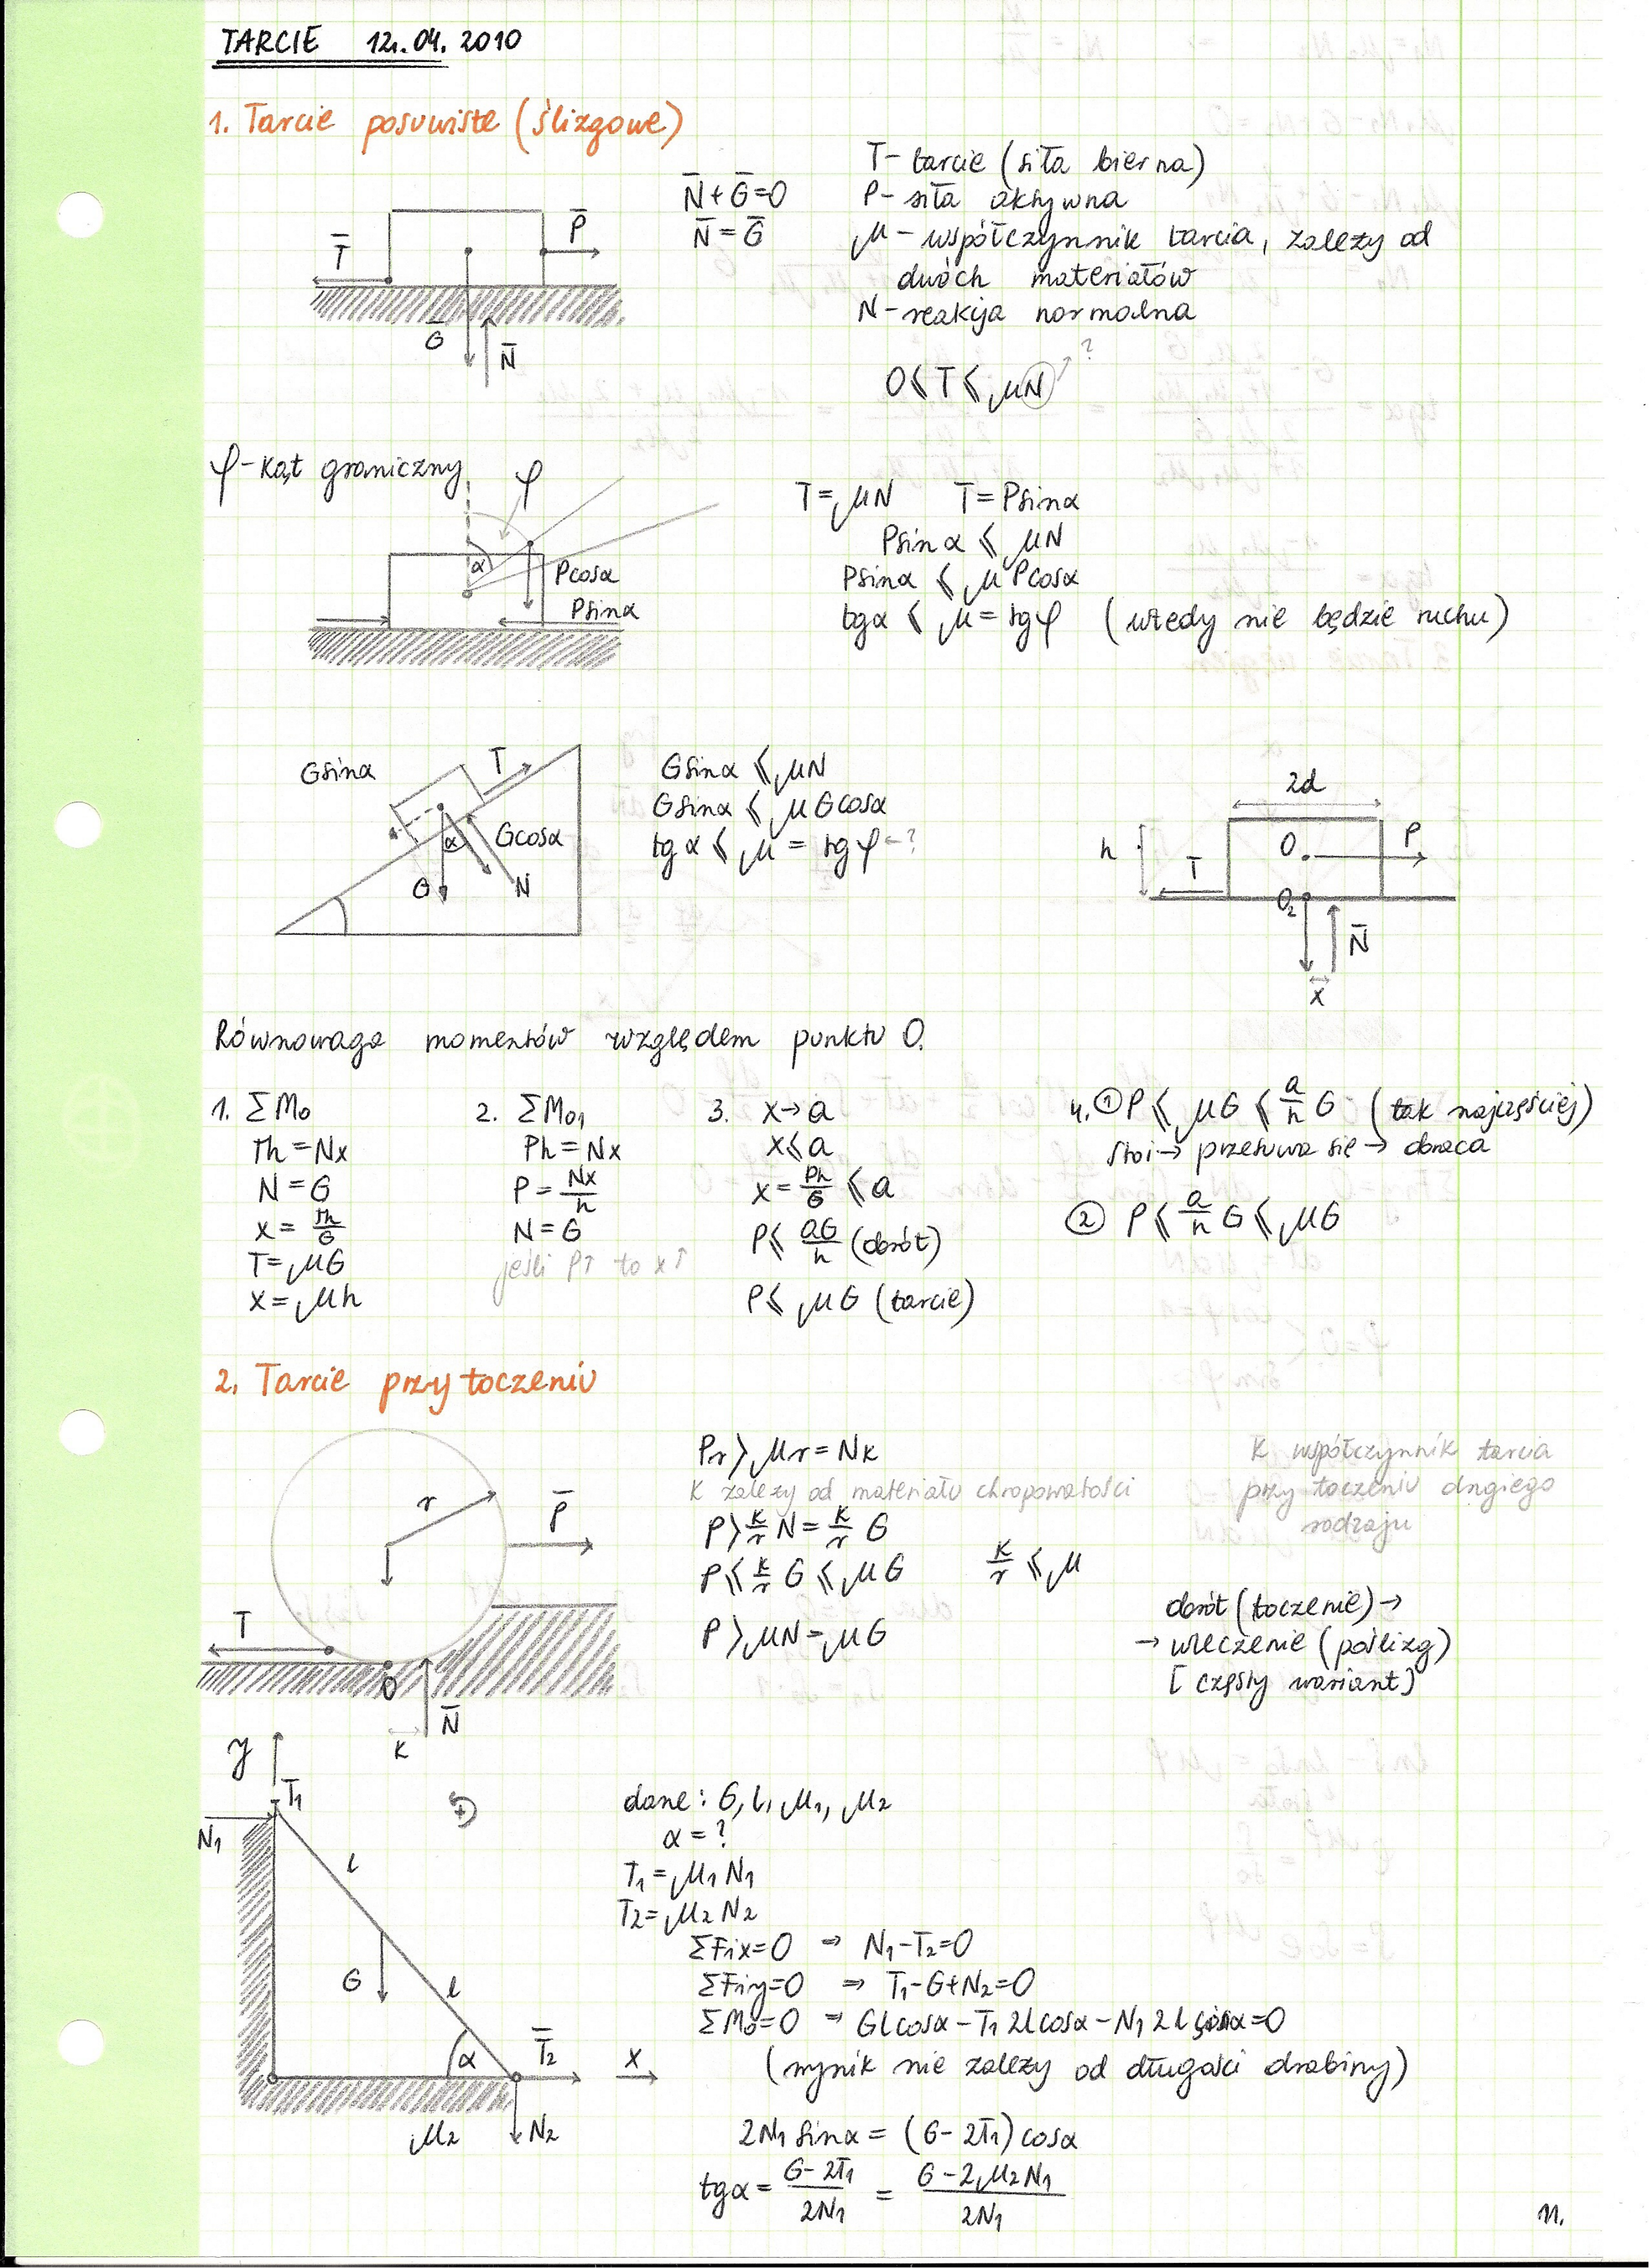 TARCIE 12.04.2010
1. Tarcie posuwiste (ślizgowe)
T̄
P̄
Ḡ
N̄
N̄+Ḡ=0
N̄=Ḡ
T- tarcie (siła bierna)
P- siła aktywna
μ- współczynnik tarcia, zależy od
dwóch materiałów
N- reakcja normalna
0≤T≤μN ?
φ-kąt graniczny
φ
α
Pcosα
Psinα
T=μN T=Psinα
Psinα≤μN
Psinα≤μPcosα
tgα≤μ=tgφ (wtedy nie będzie ruchu)
Gsinα
T
α
Gcosα
G
N
Gsinα≤μN
Gsinα≤μGcosα
tgα≤μ=tgφ ←?
2d
h
O
P
T
O₂
N̄
x
Równowaga momentów względem punktu O.
1. ΣM₀
Th=Nx
N=G
x=Th/G
T=μG
x=μh
2. ΣM₀₁
Ph=Nx
P=Nx/h
N=G
jeśli P↑ to x↑
3. x→a
x≤a
x=Ph/G≤a
P≤aG/h (obrót)
P≤μG (tarcie)
4. ① P≤μG≤a/h G (tak najczęściej)
stoi→ przesuwa się → obraca
② P≤a/h G≤μG
2. Tarcie przy toczeniu
r
P̄
T
O
N̄
k
Pr>μr=Nk
k zależy od materiału chropowatości
P>k/r N=k/r G
P≤k/r G≤μG k/r≤μ
P>μN=μG
k współczynnik tarcia
przy toczeniu drugiego
rodzaju
obrót (toczenie)→
→ wleczenie (poślizg)
[częsty wariant]
y
T̄₁
N₁
l
G
l
α
T̄₂
x
μ₂
N₂
dane: G, l, μ₁, μ₂
α=?
T₁=μ₁N₁
T₂=μ₂N₂
ΣFix=0 ⇒ N₁-T₂=0
ΣFiy=0 ⇒ T₁-G+N₂=0
ΣM₀=0 ⇒ Glcosα-T₁2lcosα-N₁2lsinα=0
(wynik nie zależy od długości drabiny)
2N₁sinα=(G-2T₁)cosα
tgα=G-2T₁/2N₁=G-2μ₂N₁/2N₁
11.